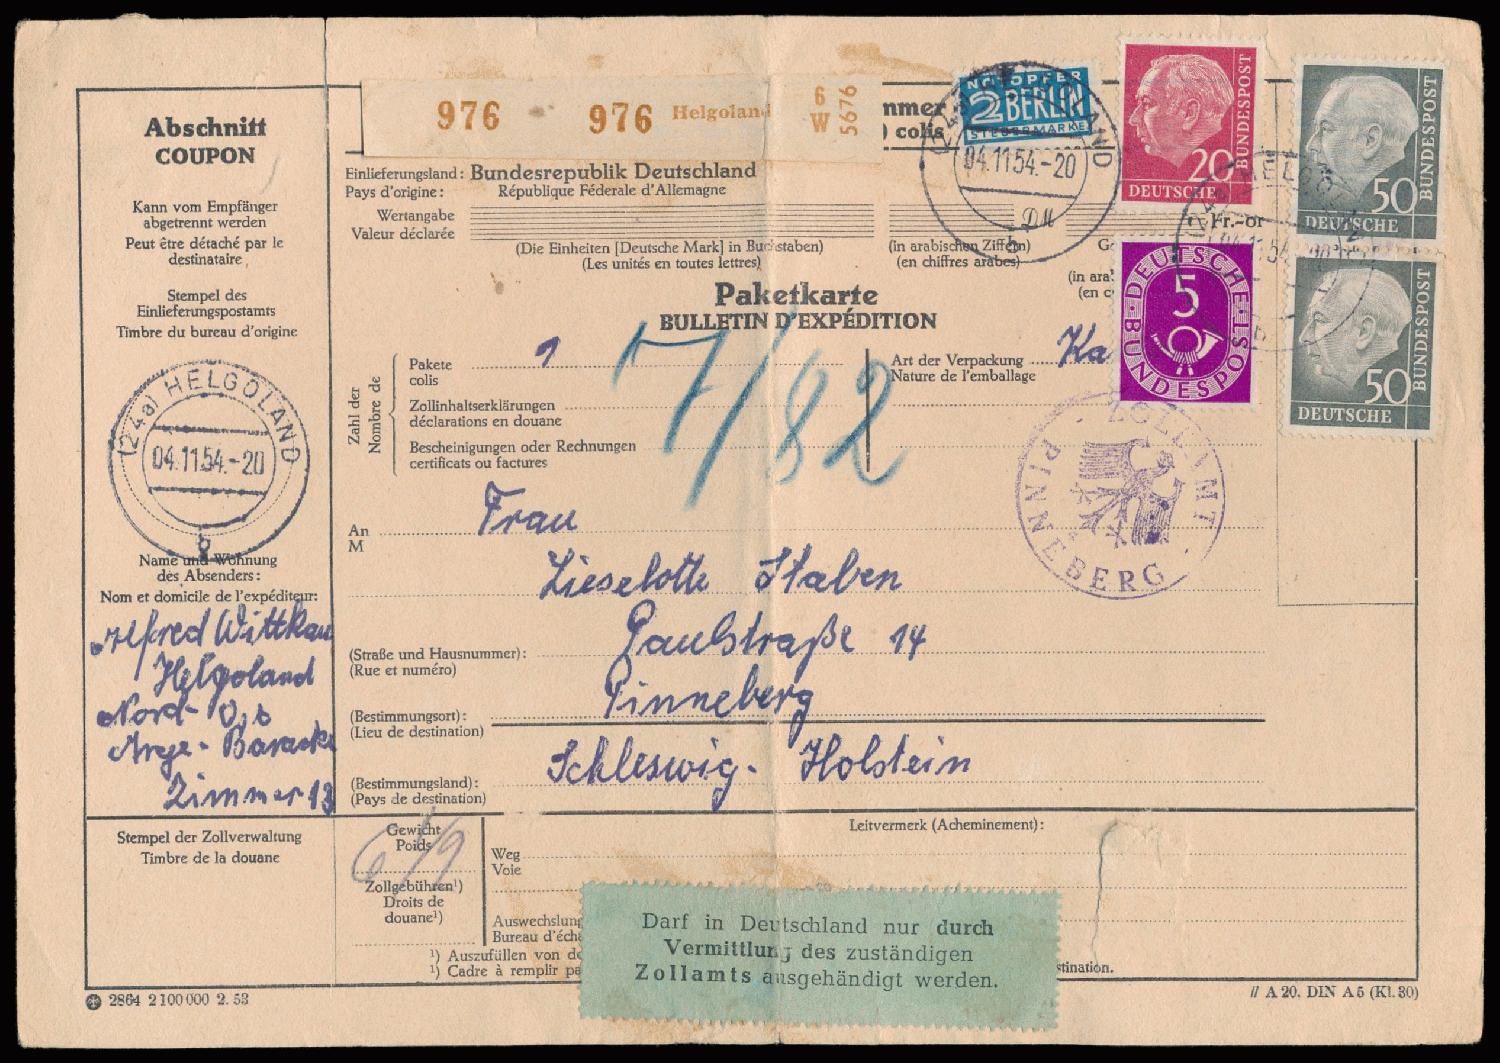 Abschnitt
COUPON
Kann vom Empfänger
abgetrennt werden
Peut être détaché par le
destinataire
Stempel des
Einlieferungspostamts
Timbre du bureau d'origine
(24a) HELGOLAND
04.11.54.-20
b
Name und Wohnung
des Absenders:
Nom et domicile de l'expéditeur:
Alfred Wittkau
Helgoland
Nord-
Arge-Baracke
Zimmer 13
Stempel der Zollverwaltung
Timbre de la douane
976 976 Helgoland 6 W 5676
mmer
colis
Einlieferungsland: Bundesrepublik Deutschland
Pays d'origine: République Féderale d'Allemagne
Wertangabe
Valeur déclarée
(Die Einheiten [Deutsche Mark] in Buchstaben)
(Les unités en toutes lettres)
(in arabischen Ziffern)
(en chiffres arabes)
DM
G
(in ara
(en c
Fr.-or
NOTOPFER
2 BERLIN
STEUERMARKE
HELGOLAND
04.11.54.-20
b
20
DEUTSCHE
BUNDESPOST
50
DEUTSCHE
BUNDESPOST
HELGOLAN
50
DEUTSCHE
BUNDESPOST
5
DEUTSCHE
BUNDESPOST
Paketkarte
BULLETIN D'EXPÉDITION
Zahl der
Nombre de
Pakete 1
colis
Zollinhaltserklärungen
déclarations en douane
Bescheinigungen oder Rechnungen
certificats ou factures
Art der Verpackung Ka
Nature de l'emballage
7/82
ZOLLAMT
PINNEBERG
An
M
Frau
Lieselotte Staben
(Straße und Hausnummer): Paulstraße 14
(Rue et numéro)
(Bestimmungsort): Pinneberg
(Lieu de destination)
(Bestimmungsland): Schleswig-Holstein
(Pays de destination)
Gewicht
Poids
Zollgebühren¹)
Droits de
douane¹)
Leitvermerk (Acheminement):
Weg
Voie
Auswechslung
Bureau d'éch
¹) Auszufüllen von de
¹) Cadre à remplir pa
stination.
Darf in Deutschland nur durch
Vermittlung des zuständigen
Zollamts ausgehändigt werden.
2864 2 100 000 2. 53
// A 20, DIN A 5 (Kl. 30)